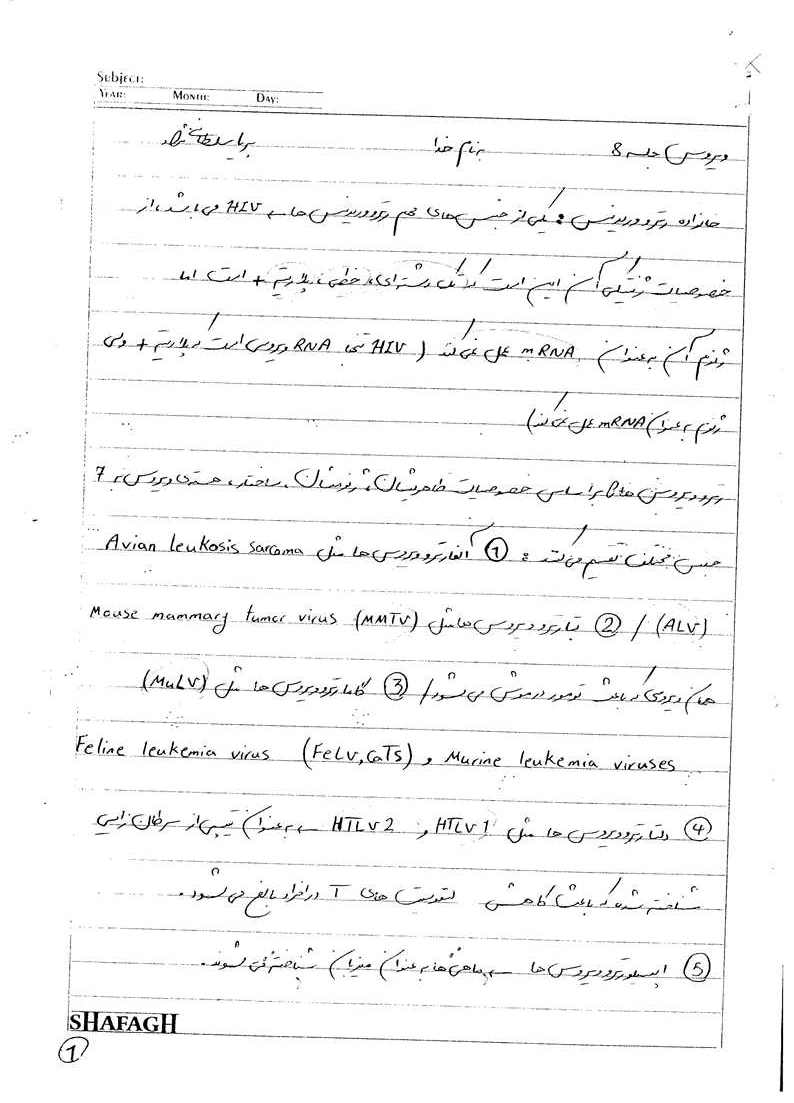 Subject:
Year: Month: Day:
ویروس جلسه 8 بنام خدا
خانواده رتروویریدس: یکی از جنس های مهم رتروویریدس ها ← HIV می باشد، از
خصوصیات ژنتیکی آن این است که تک رشته ای، خطی، پلاریته + است اما
ژنوم آن به عنوان mRNA عمل نمی کند ( HIV تنها RNA ویروس است که پلاریته + ولی
ژنوم به عنوان mRNA عمل نمی کند)
رتروویروس ها براساس خصوصیات ظاهریشان، ژنومشان، ساختار، هسته ی ویروس به 7
جنس مختلف تقسیم می کنند: ① آلفارتروویروس ها مثل Avian leukosis sarcoma
(ALV) / ② بتارتروویروس ها مثل Mouse mammary tumor virus (MMTV)
همان ویروسی که باعث تومور در موش می شود / ③ گامارتروویروس ها مثل (MuLV)
Feline leukemia virus (FeLV, CaTs) و Murine leukemia viruses
④ دلتارتروویروس ها مثل HTLV1 و HTLV2 ← به عنوان تیپی از سرطان زایی
شناخته شده که باعث کاهش لنفوسیت های T در افراد بالغ می شود.
⑤ اپسیلورتروویروس ها ← ماهی ها به عنوان میزبان شناخته می شوند.
SHAFAGH
①